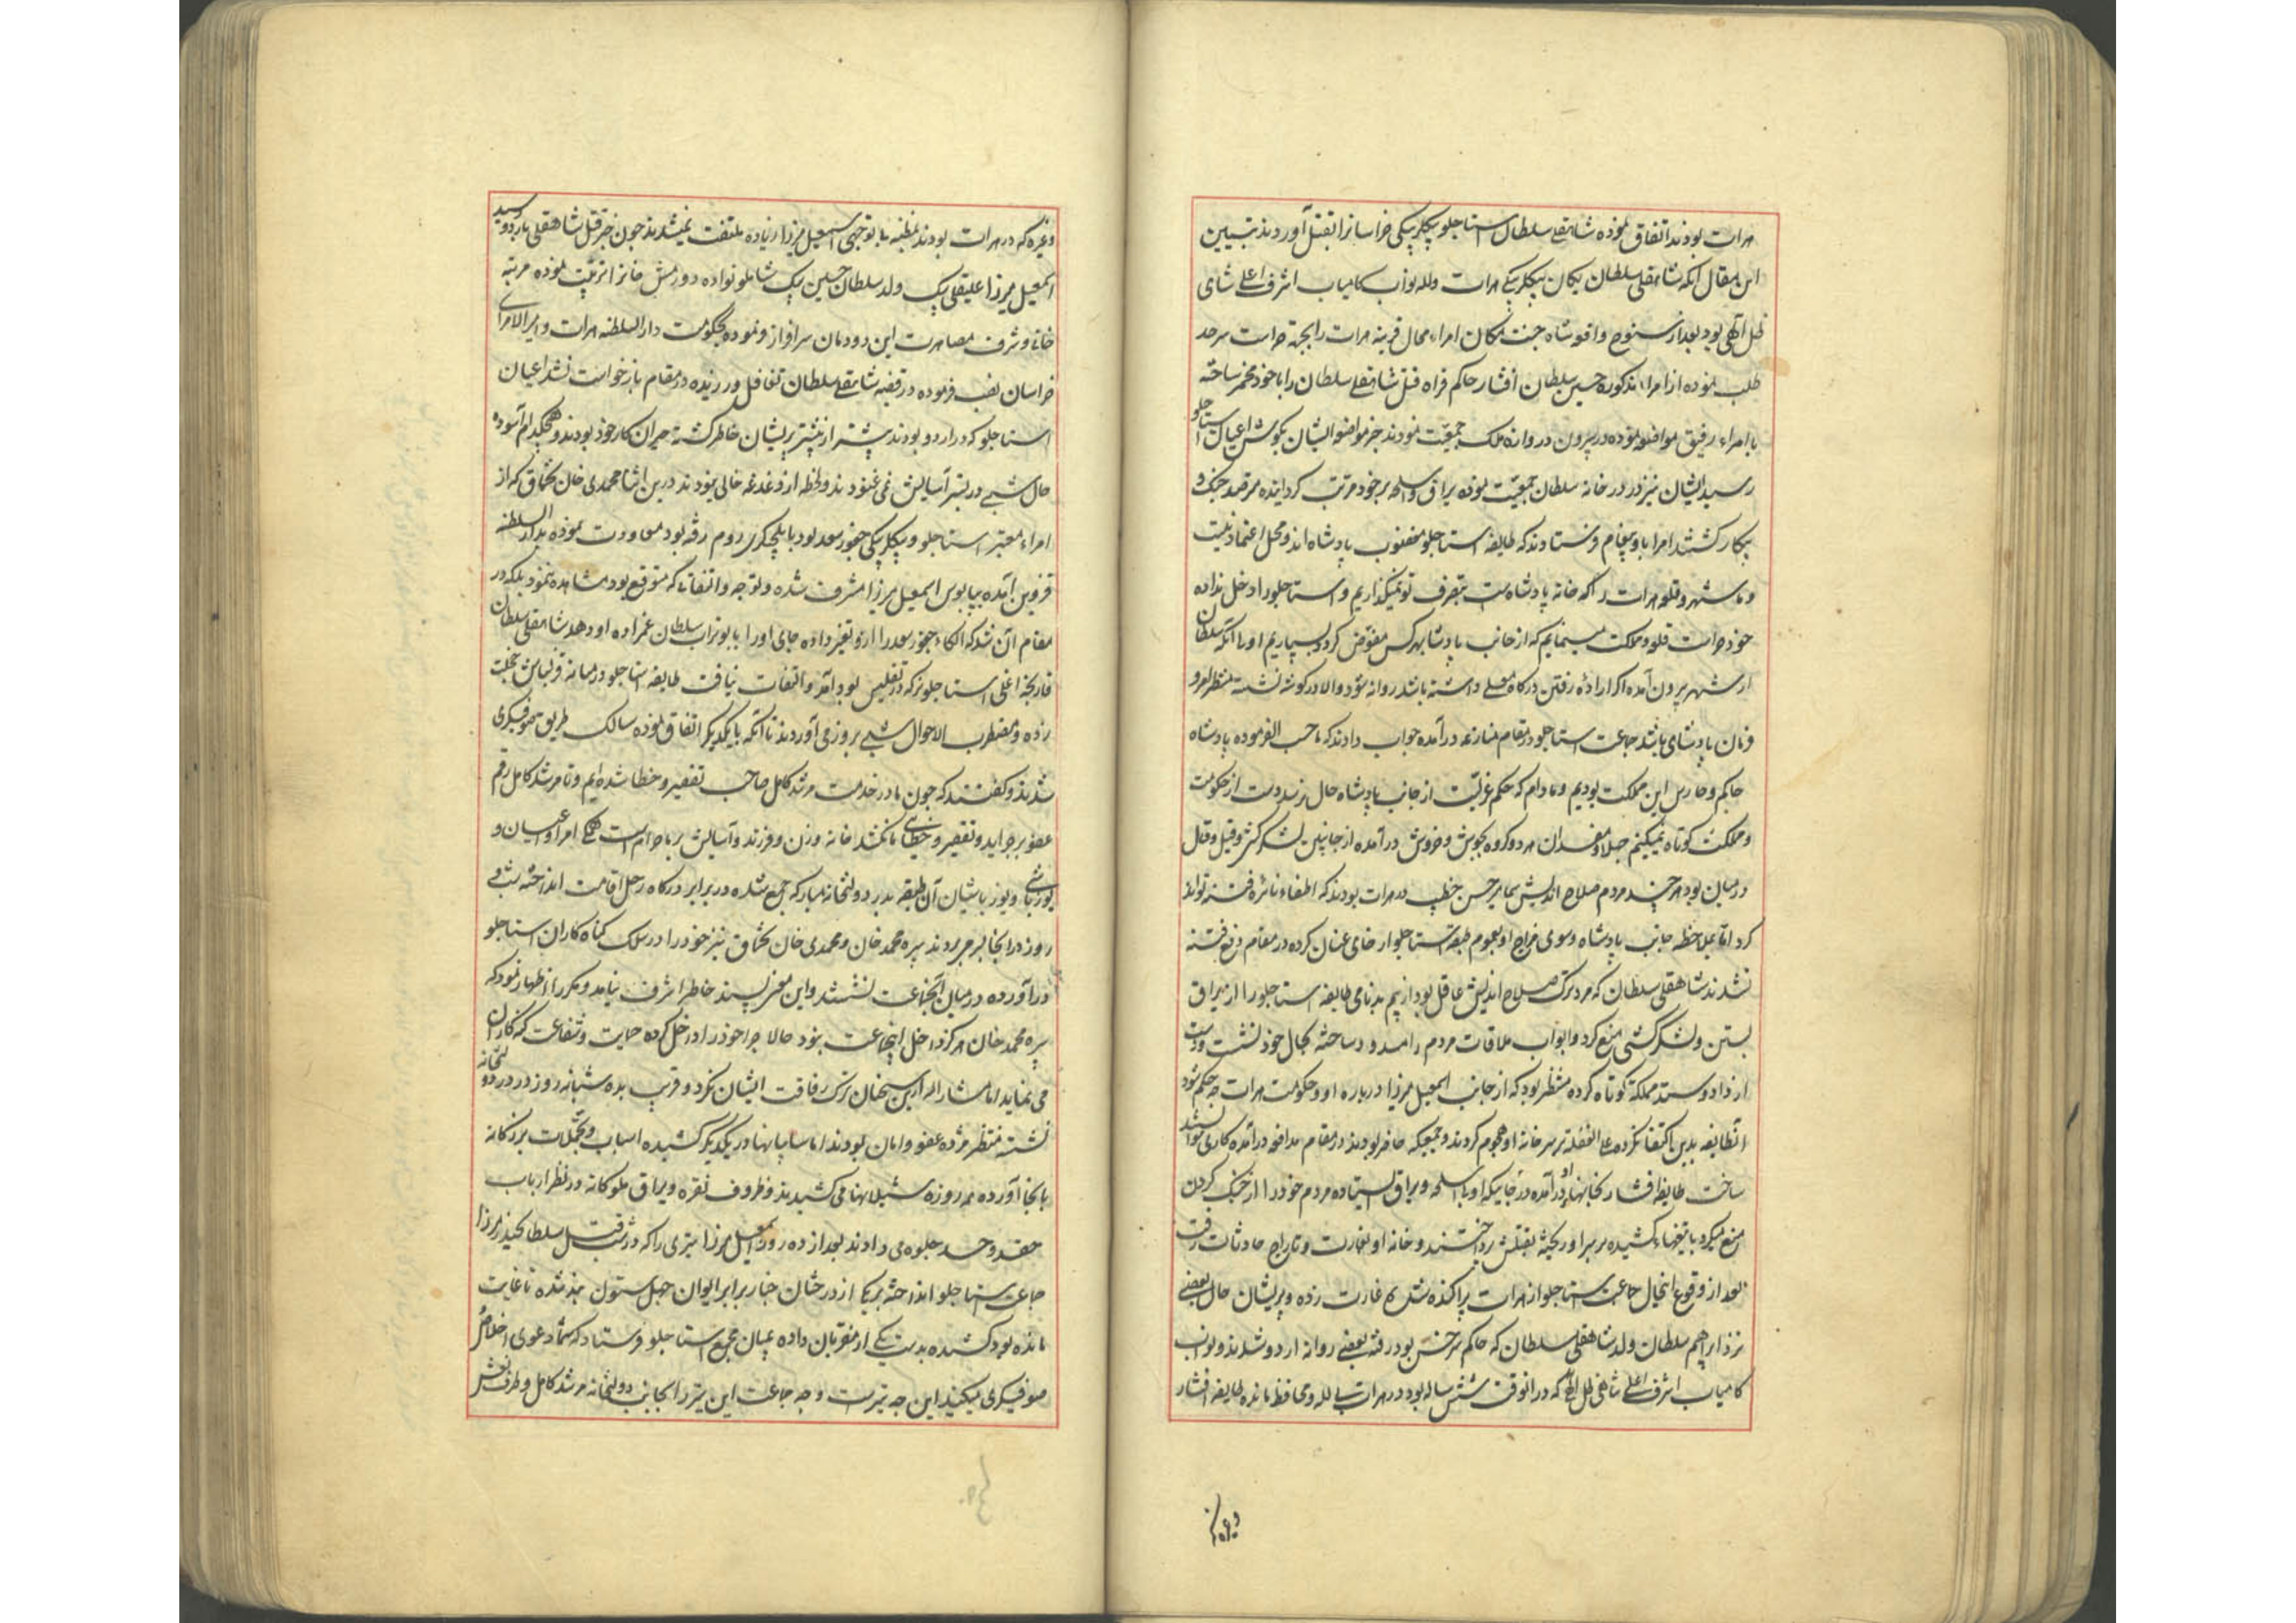 هرات بودند اتفاق نموده شاهقلی سلطان استاجلو بیکلربیکی خراسانرا بقتل آوردند تبیین
این مقال آنکه شاهقلی سلطان یکان بیکلربیکی هرات و لله نواب کامیاب اشرف اعلی شاهی
ظل الهی بود بعد از سنوح واقعه شاه جنت مکان امراء محال قریبه هرات را بجهة حراست سرحد
طلب نموده از امراء مذکوره حسین سلطان افشار حاکم فراه قتل شاهقلی سلطان را با خود مخمر ساخته
با امراء رفیق مواضعه نموده در بیرون دروازه ملک جمعیت نمودند خبر مواضعه ایشان بکوش اعیان استاجلو
رسید ایشان نیز در در خانه سلطان جمعیت نموده یراق و اسلحه بر خود مرتب کردانیده مترصد جنک و
پیکار کشتند امرا باو پیغام فرستادند که طایفه استاجلو مغضوب پادشاه اند و محل اعتماد نیست
و ما شهر و قلعه هرات را که خانه پادشاه است بتصرف تو نمیکذاریم و استاجلو را دخل نداده
خود حراست قلعه و مملکت مینمائیم که از جانب پادشاه بهر کس مفوض کردد بسپاریم اولی آنکه سلطان
از شهر بیرون آمده اکر اراده رفتن درکاه معلی داشته باشد روانه شود والا در کوشه نشسته منتظر امر و
فرمان پادشاهی باشد جماعت استاجلو در مقام منازعه درآمده جواب دادند که ما حسب الفرموده پادشاه
حاکم و حارس این مملکت بودیم و مادام که حکم عزلت از جانب پادشاه حال نرسد دست از حکومت
و مملکت کوتاه نمیکنیم جهلا و مفسدان هر دو کروه بجوش و خروش درآمده از جانبین لشکرکشی و قیل و قال
در میان بود هر چند مردم صلاح اندیش بتخصیص خطیب در هرات بودند که اطفاء نائره فتنه توانند
کرد اما بملاحظه جانب پادشاه و سوی مزاج او بعموم طبقه استاجلو ارخای عنان کرده در مقام دفع فتنه
نشدند شاهقلی سلطان که مرد ترک صلاح اندیش عاقل بود از بیم بدنامی طایفه استاجلو را از یراق
بستن و لشکرکشی منع کرد و ابواب ملاقات مردم را مسدود ساخته بحال خود نشست و دست
از داد و ستد مملکت کوتاه کرده منتظر بود که از جانب اسمعیل میرزا درباره او و حکومت هرات چه حکم شود
آنطایفه بدین اکتفا نکرده علی الغفلة بر سر خانه او هجوم کردند و جمعی که حاضر بودند در مقام مدافعه درآمده کاری نتوانستند
ساخت طایفه افشار بخانهاء او درآمده در جائیکه او با اسلحه و یراق ایستاده مردم خود را از جنک کردن
منع میکرد با تیغهاء کشیده بر سر او ریخته بقتلش پرداختند و خانه او بغارت و تاراج حادثات رفت
بعد از وقوع اینحال جماعت استاجلو از هرات پراکنده شدند غارت زده و پریشان حال بعضی
نزد ابراهیم سلطان ولد شاهقلی سلطان که حاکم سرخس بود رفته بعضی روانه اردو شدند و نواب
کامیاب اشرف اعلی شاهی ظل الهی که در آنوقت شش ساله بود در هرات بی لله و محافظ مانده طایفه افشار
وغیره که در هرات بودند بمظنه بی توجهی اسمعیل میرزا زیاده ملتفت نمیشدند چون خبر قتل شاهقلی باردو رسید
اسمعیل میرزا علیقلی بیک ولد سلطان حسین بیک شاملو نواده دورمش خانرا تربیت نموده مرتبه
خانی و شرف مصاهرت این دودمان سرافراز فرموده بحکومت دارالسلطنه هرات و امیرالامرای
خراسان نصب فرموده در قضیه شاهقلی سلطان تغافل ورزیده در مقام بازخواست نشد اعیان
استاجلو که در اردو بودند پیشتر از پیشتر پریشان خاطر کشته حیران کار خود بودند و هیچکدام آسوده
حال شبی در بستر آسایش نمی غنودند و لحظه از دغدغه خالی نبودند درین اثنا محمدی خان تخماق که از
امراء معتبر استاجلو و بیکلربیکی چخور سعد بود بایلچیکری روم رفته بود معاودت نموده بدارالسلطنه
قزوین آمده بپابوس اسمعیل میرزا مشرف شده و توجه و التفاتی که متوقع بود مشاهده ننمود بلکه در
مقام آن شد که الکاء چخور سعد را ازو تغیر داده جای او را با بوتراب سلطان عمزاده او دهد شاهقلی سلطان
قارنجه اغلی استاجلو نیز که در تفلیس بود آمد و التفات نیافت طایفه استاجلو در میانه قزلباش خجلت
زده و مضطرب الاحوال شبی بروز می آوردند تا آنکه با یکدیکر اتفاق نموده سالک طریق صوفیکری
شدند و کفتند که چون ما در خدمت مرشد کامل صاحب تقصیر و خطا شده ایم و تا مرشد کامل رقم
عفو بر جراید و تقصیر و خطای ما نکشد خانه و زن و فرزند و آسایش بر ما حرام است همکی امرا و اعیان و
یوزباشی و یوزباشیان آن طبقه بدر دولتخانه مبارکه جمع شده در برابر درکاه رحل اقامت انداخته شب و
روز در آنجا بسر میبردند پیره محمد خان و محمدی خان تخماق نیز خود را در سلک کناه کاران استاجلو
درآورده در میان آنجماعت نشستند و این معنی پسند خاطر اشرف نیامد و مکررا اظهار نمود که
پیره محمد خان هرکز داخل اینجماعت نبود حالا چرا خود را داخل کرده حمایت و شفاعت کنه کاران
می نماید اما مشارالیه ازین سخنان ترک رفاقت ایشان نکرد و قریب بده شبانه روز در در دولتخانه
نشسته منتظر مژده عفو و امان بودند اما سایبانها در یکدیکر کشیده اسباب و تجملات بزرکانه
بآنجا آورده همه روزه شیلانها می کشیدند و ظروف نقره و یراق ملوکانه در نظر ارباب
حقد و حسد جلوه می دادند بعد از ده روز اسمعیل میرزا تیری را که در شب قتل سلطان حیدر میرزا
جماعت استاجلو انداخته بر یکی از درختان چنار برابر ایوان چهل ستون بند شده تا غایت
مانده بود کشیده بدست یکی از مقربان داده بمیان مجمع استاجلو فرستاد که شما دعوی اخلاص
صوفیکری میکنید این چه تیرست و چه جماعت این تیر را بجانب دولتخانه مرشد کامل و طرف نعش